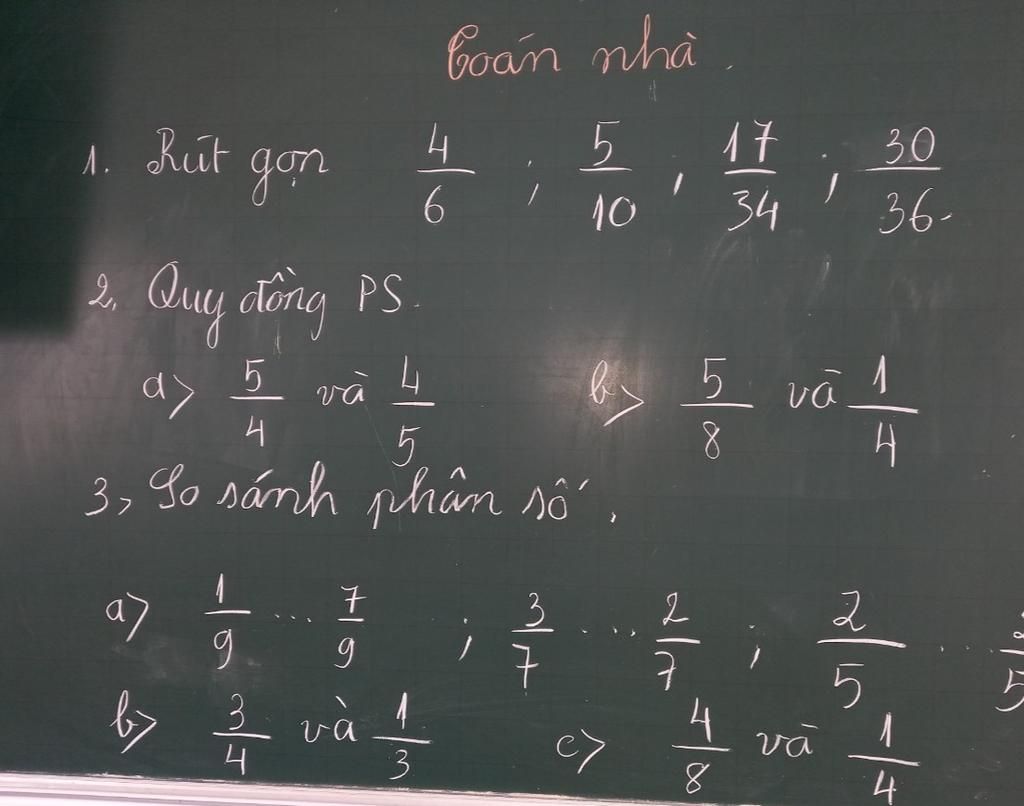 Toán nhà.
1. Rút gọn 4/6 ; 5/10 , 17/34 ; 30/36.
2. Quy đồng PS.
a> 5/4 và 4/5 b> 5/8 và 1/4
3, So sánh phân số.
a> 1/9 ... 7/9 ; 3/7 ... 2/7 ; 2/5 ...
b> 3/4 và 1/3 c> 4/8 và 1/4